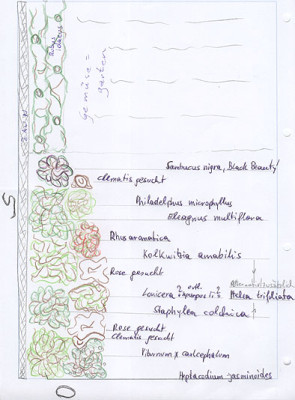 Rubus idaeus
Gemüse=
garten
Sambucus nigra, Black Beauty'
Clematis gesucht
Philadelphus microphyllus
Eleagnus multiflora
Rhus aromatica
Kolkwitzia amabilis
Rose gesucht
Lonicera
Ptelea trifoliata
Staphylea colchica
Rose gesucht
Clematis gesucht
Viburnum x carlcephalum
Heptacodium jasminoides
S
O